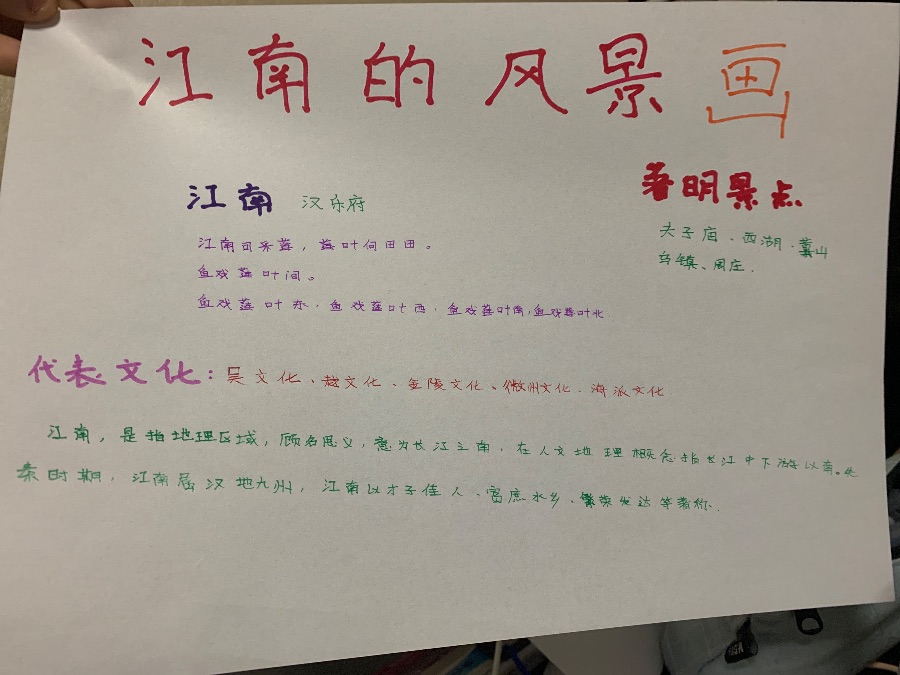 江南的风景画
江南 汉乐府
江南可采莲，莲叶何田田。
鱼戏莲叶间。
鱼戏莲叶东，鱼戏莲叶西，鱼戏莲叶南，鱼戏莲叶北
著明景点
夫子庙、西湖、黄山
乌镇、周庄.
代表文化：吴文化、越文化、金陵文化、徽州文化、海派文化
江南，是指地理区域，顾名思义，意为长江之南，在人文地理概念指长江中下游以南。先
秦时期，江南属汉地九州，江南以才子佳人、富庶水乡、繁荣发达等著称.